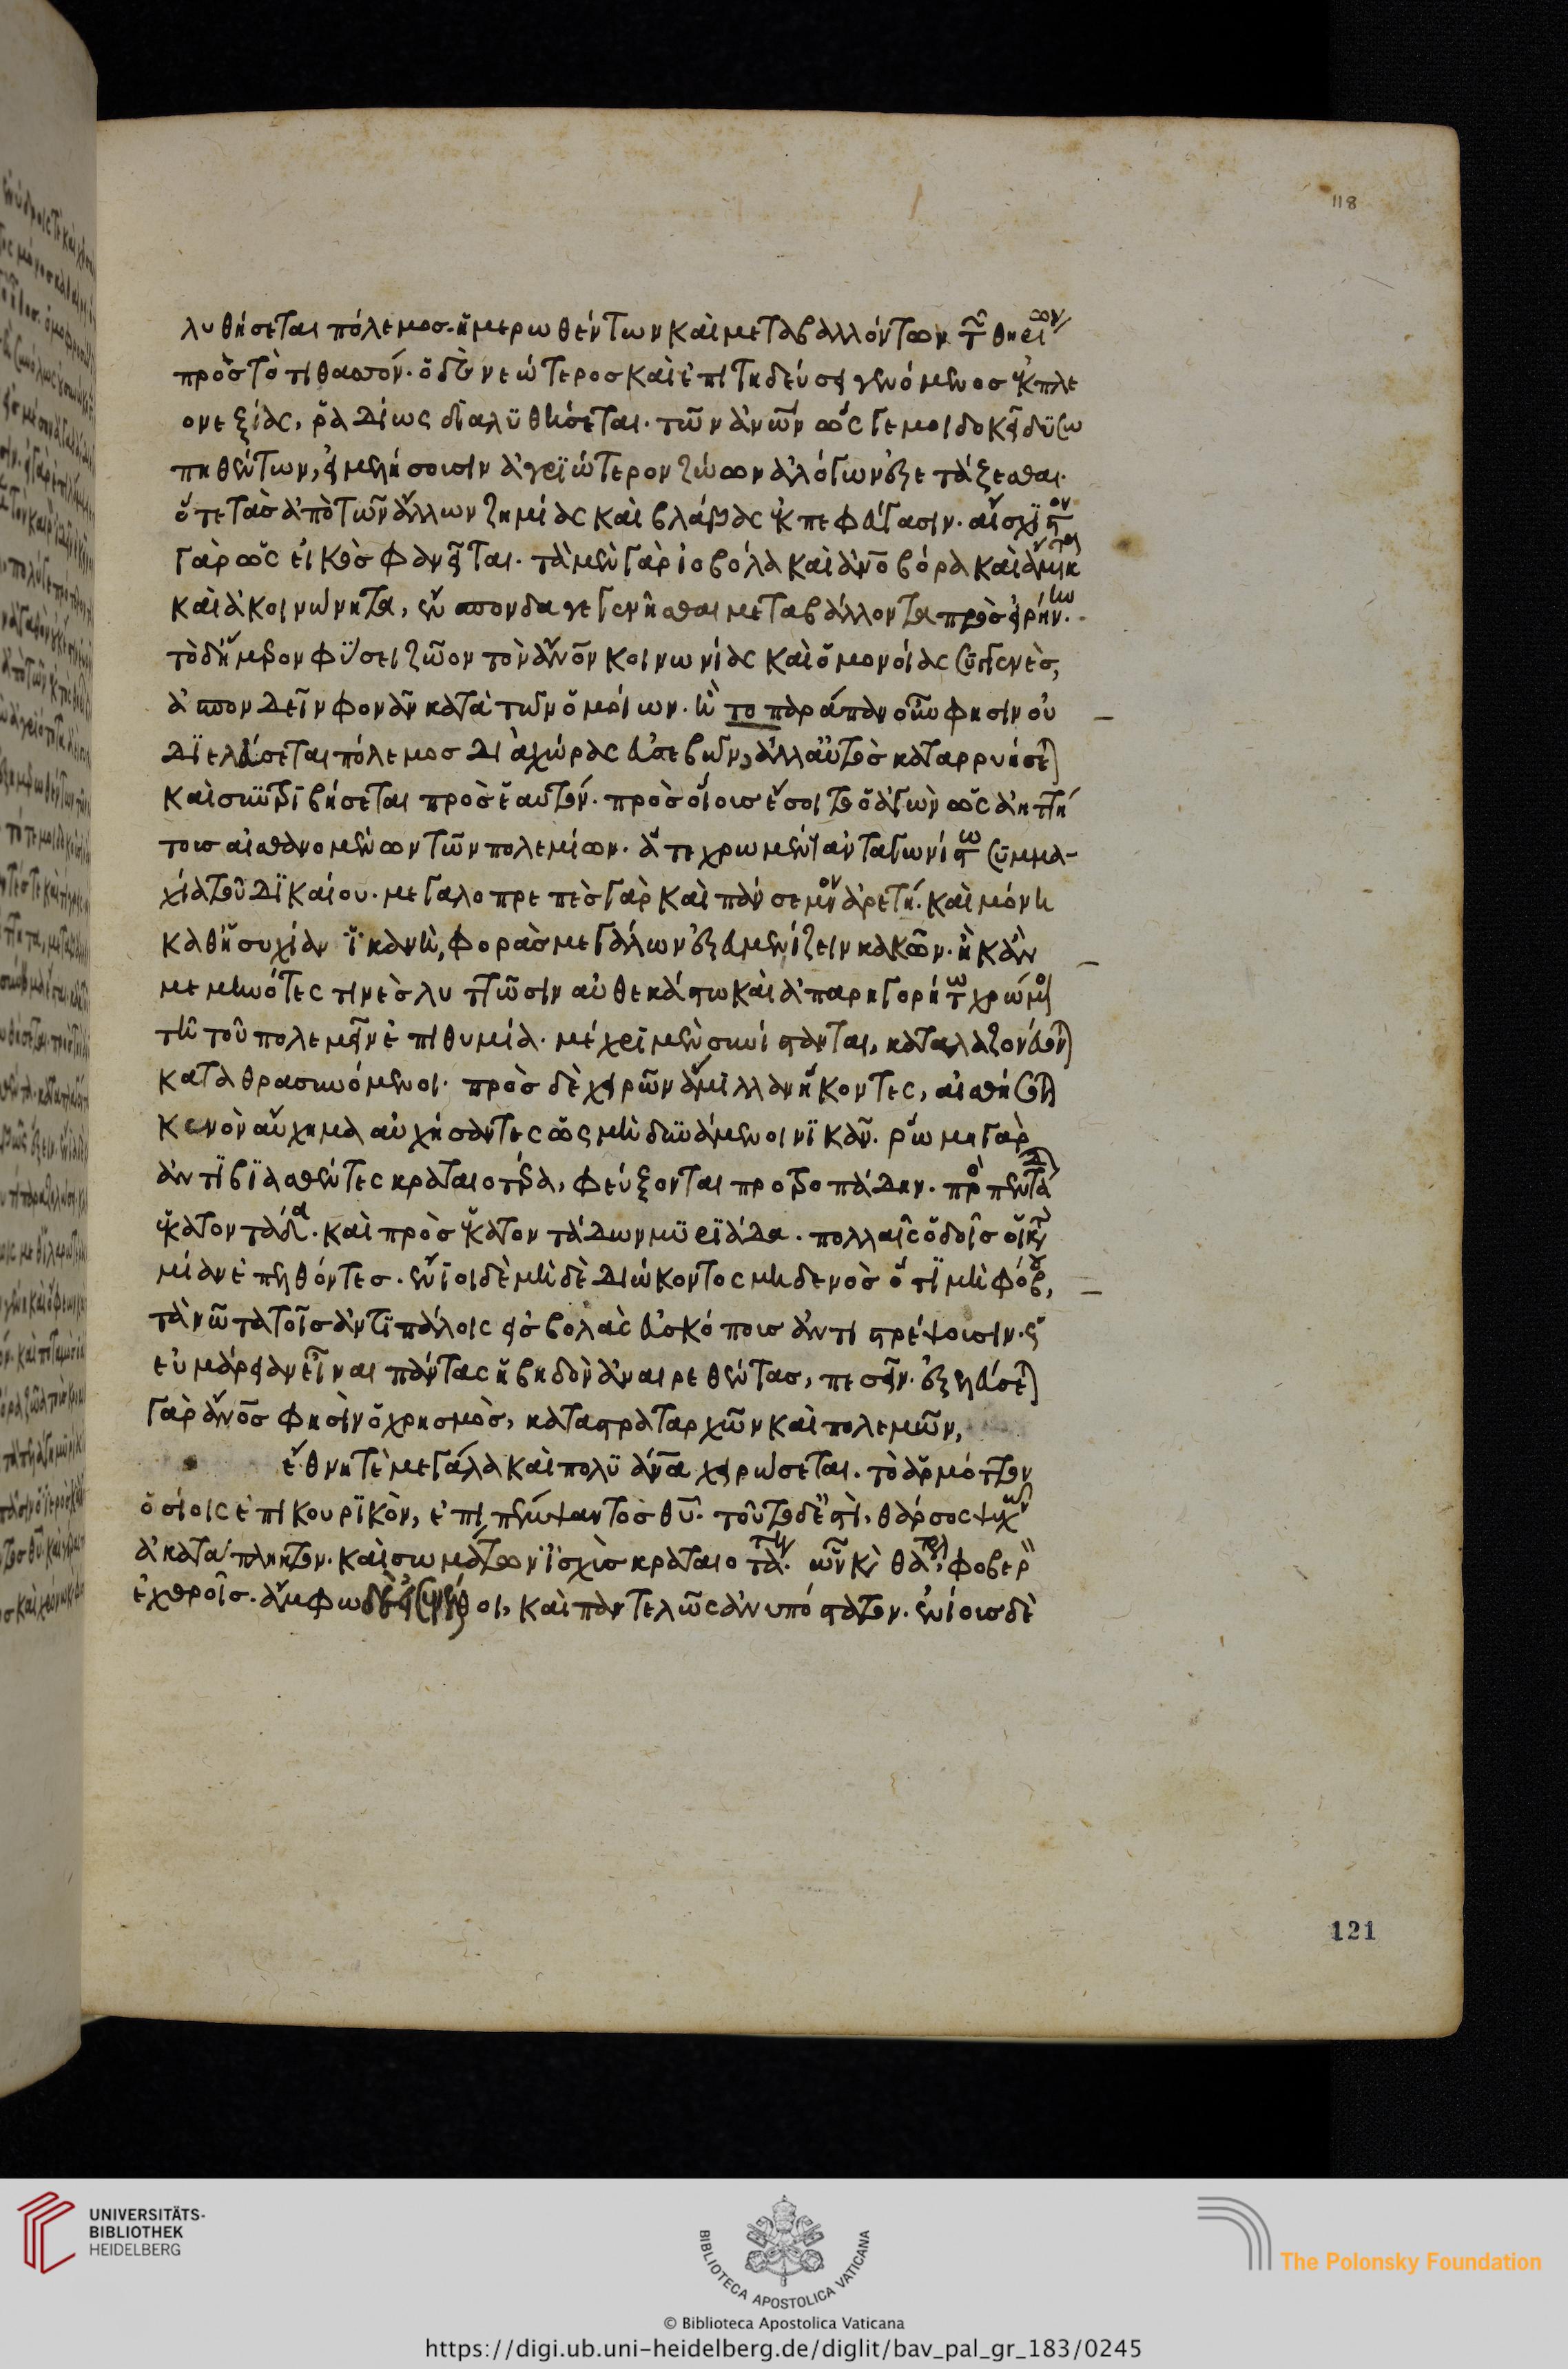 λυθήσεται πόλεμος. ἡμερωθέντων καὶ μεταβαλλόντων τῶν θηρίων
πρὸς τὸ τιθασσόν. ὁ δὲ νεώτερος καὶ ἐπιτηδεύσει γενόμενος ἐκ πλε
ονεξίας, ῥαδίως διαλϋθήσεται. τῶν ἀνῶν ὥς γε μοι δοκεῖ δϋσω
πηθέντων, εἰ μελήσουσιν ἀγριώτερον ζώων ἀλόγων ἐξετάζεσθαι.
ὅτε τὰς ἀπὸ τῶν ἄλλων ζημίας καὶ βλάβας ἐκπεφεύγασιν. αἴσχιστον
γὰρ ὡς εἰκὸς φανεῖται. τὰ μὲν γὰρ ἰοβόλα καὶ ἀνοβόρα καὶ ἄμικτα
καὶ ἀκοινώνητα, ἔνσπονδα γεγενῆσθαι μεταβάλλοντα πρὸς εἰρήνην.
τὸ δ' ἥμερον φύσει ζῶον τὸν ἄνον κοινωνίας καὶ ὁμονοίας συγγενὲς,
ἀσπονδεῖν φονᾶν κατὰ τῶν ὁμοίων. ἢ το παράπαν οὖν φησιν οὐ
διελεύσεται πόλεμος διὰ χώρας εὐσεβῶν, ἀλλ' αὐτὸς καταρρυήσεται
καὶ συντριβήσεται πρὸς ἑαυτόν. πρὸς οἵους ἔσοιτο ὁ ἀγὼν ὡς ἀηττή
τοις αἰσθανομένων τῶν πολεμίων. ἅτε χρωμένων ἀνταγωνίστω συμμα-
χία τοῦ δικαίου. μεγαλοπρεπὲς γὰρ καὶ πάνσεμνον ἀρετή. καὶ μόνη
καθ' ἡσυχίαν ἱκανὴ, φορὰς μεγάλων ἐξευμενίζειν κακῶν. ἢ κἂν
μεμηνότες τινὲς λυττῶσιν αὐθεκάστω καὶ ἀπαρηγορήτω χρώμενοι
τῆ τοῦ πολεμεῖν ἐπιθυμία. μέχρι μὲν συνίστανται, καταλαζονεύονται
καταθρασυνόμενοι. πρὸς δὲ χειρῶν ἅμιλλαν ἥκοντες, αἰσθήσονται
κενὸν αὔχημα αὐχήσαντες ὡς μὴ δυνάμενοι νικᾶν. ῥώμη γὰρ
ἀντιβιασθέντες κραταιοτέρα, φεύξονται προτροπάδην. πρὸς πεντάδων
ἑκατοντάδα. καὶ πρὸς ἑκατοντάδων μυριάδα. πολλαῖς ὁδοῖς οἱ κατὰ
μίαν ἐπελθόντες. ἔνϊοι δὲ μὴδὲ διώκοντος μηδενὸς ὅτι μὴ φόβου,
τὰ νῶτα τοῖς ἀντιπάλοις εἰσβολὰς εὐσκόπους ἀντιστρέψουσιν. ὡς
εὐμαρὲς ἂν εἶναι πάντας ἡβηδὸν ἀναιρεθέντας, πεσεῖν. ἐξελεύσεται
γὰρ ἄνος φησὶν ὁ χρησμὸς, καταστραταρχῶν καὶ πολεμῶν,
ἔθνη τὲ μεγάλα καὶ πολϋάνα χειρώσεται. τὸ ἁρμόττον
ὁσίοις ἐπικουρϊκὸν, ἐπιπέμψαντος θυ. τοῦτο δέ ἐστὶ, θάρσος ψυχῶν
ἀκατάπληκτον. καὶ σωμάτων ἰσχὺς κραταιοτάτη. ὧν καὶ θάτερον φοβερὸν
ἐχθροῖς. ἄμφω δὲ εἰ συνέλθοι, καὶ παντελῶς ἀνυπόστατον. ἐνίους δὲ
118
121
UNIVERSITÄTS-
BIBLIOTHEK
HEIDELBERG
BIBLIOTECA APOSTOLICA VATICANA
The Polonsky Foundation
© Biblioteca Apostolica Vaticana
https://digi.ub.uni-heidelberg.de/diglit/bav_pal_gr_183/0245